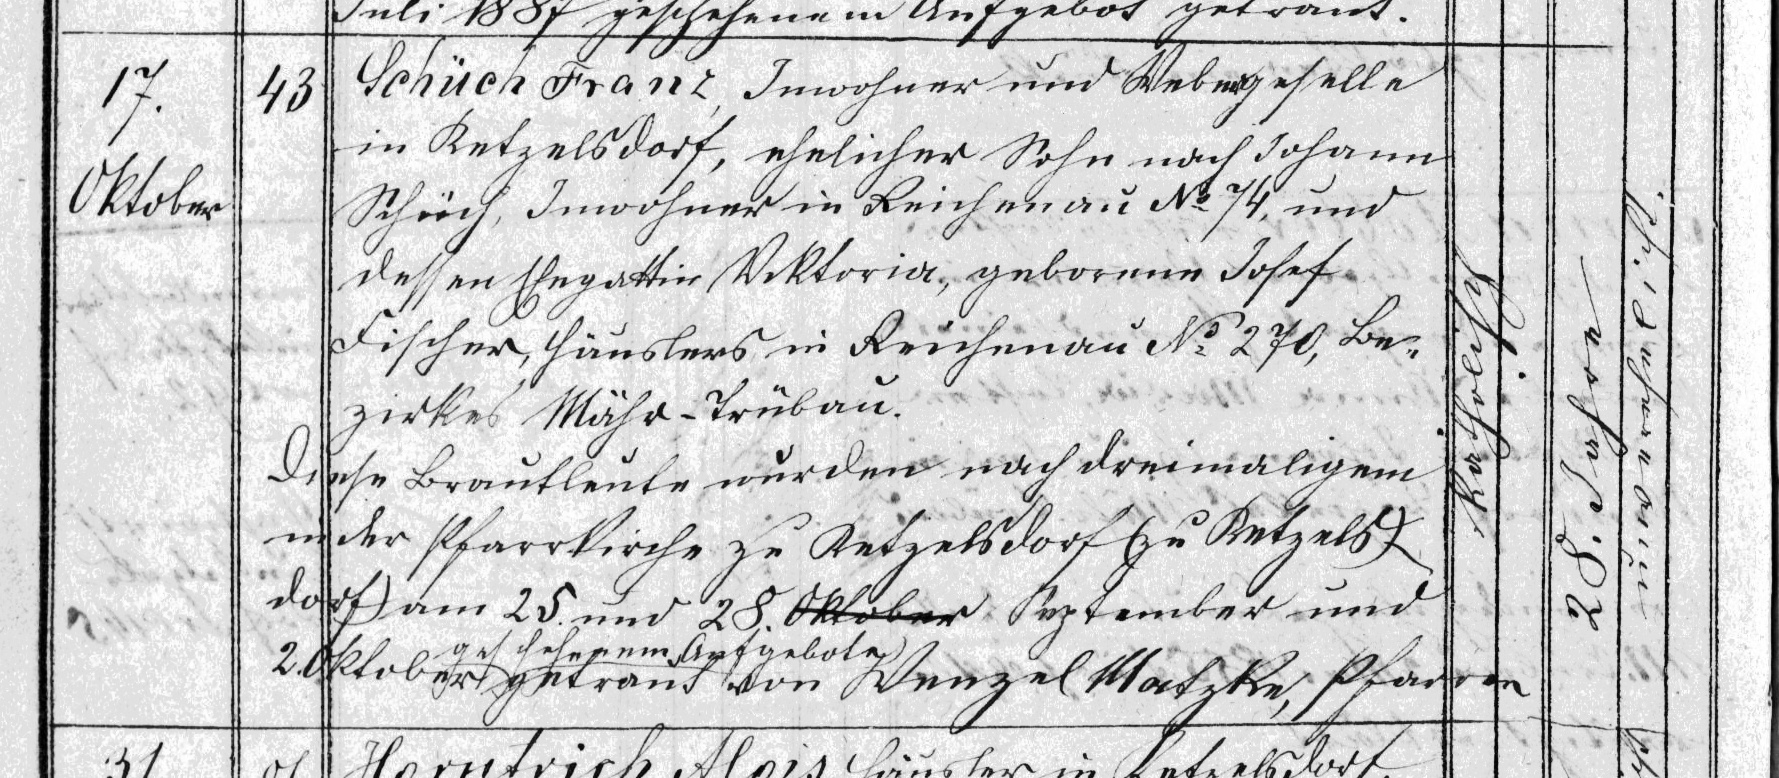 Juli 1887 geschehenem Aufgebot getraut.
17.
Oktober
43
Schüch Franz, Inwohner und Webergeselle
in Ketzelsdorf, ehelicher Sohn nach Johann
Schüch, Inwohner in Reichenau No 74, und
dessen Ehegattin Viktoria, geborene Josef
Fischer, Häuslers in Reichenau No 270, Be-
zirkes Mähr-Trübau.
Diese Brautleute wurden nach dreimaligem
in der Pfarrkirche zu Ketzelsdorf (zu Ketzels)
dorf) am 25. und 28. Oktober September und
geschehenem Aufgebote
2. Oktober getraut von Wenzel Matzke, Pfarrer
katholisch.
28. Jahre
unverehelicht.
31
Horntrich Alois Häusler in Ketzelsdorf,